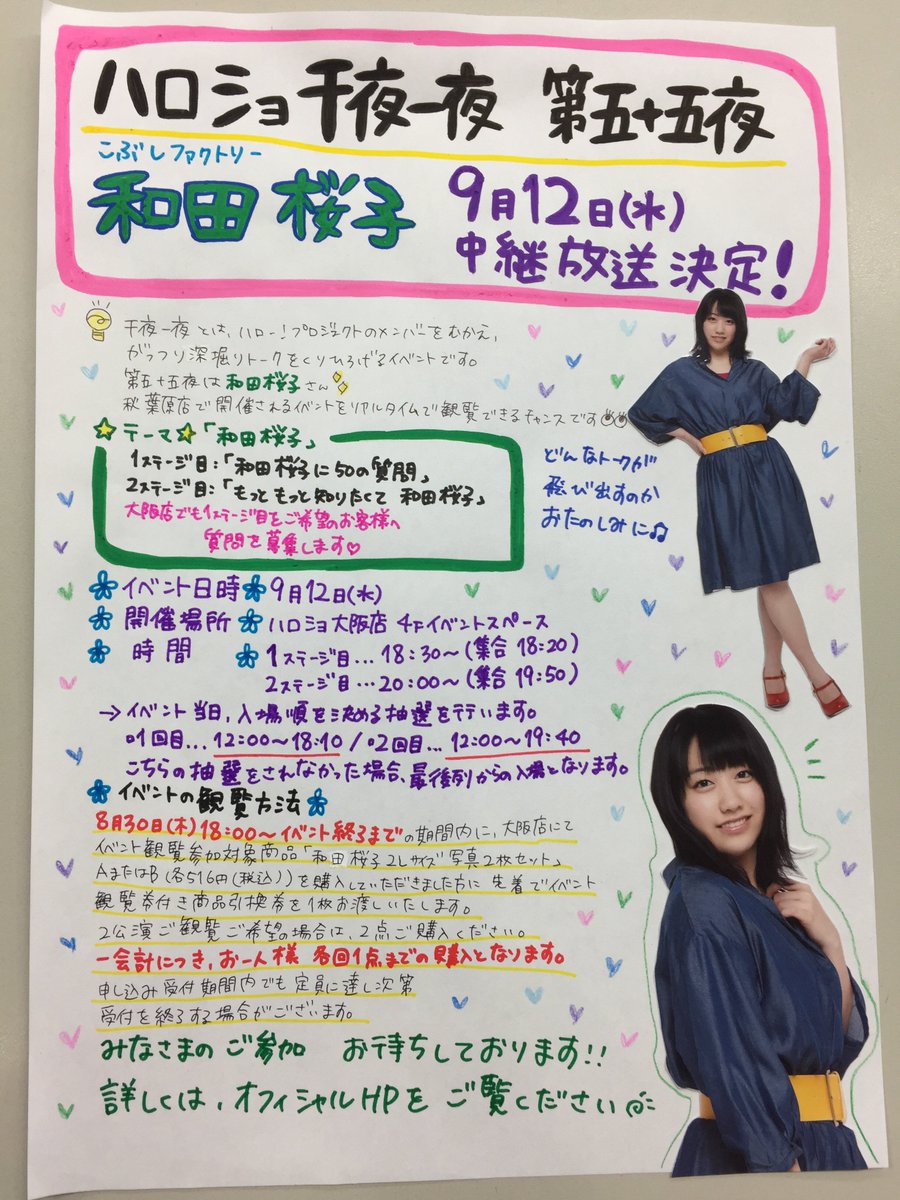 ハロショ千夜一夜 第五十五夜
こぶしファクトリー
和田 桜子
9月12日(水)
中継放送決定!
千夜一夜とは、ハロー!プロジェクトのメンバーをむかえ、
がっつり深堀りトークをくりひろげるイベントです。
第五十五夜は和田桜子さん
秋葉原店で開催されるイベントをリアルタイムで観覧できるチャンスです
☆テーマ☆「和田桜子」
1ステージ目:「和田桜子に50の質問」
2ステージ目:「もっともっと知りたくて 和田桜子」
大阪店でも1ステージ目をご希望のお客様へ
質問を募集します♡
どんなトークが
飛び出すのか
おたのしみに♫
イベント日時 9月12日(水)
開催場所 ハロショ大阪店 4Fイベントスペース
時間 1ステージ目…18:30〜(集合18:20)
2ステージ目…20:00〜(集合19:50)
→イベント当日、入場順を決める抽選を行います。
1回目…12:00〜18:10/2回目…12:00〜19:40
こちらの抽選をされなかった場合、最後列からの入場となります。
イベントの観覧方法
8月30日(木)18:00〜イベント終了までの期間内に、大阪店にて
イベント観覧参加対象商品「和田桜子2Lサイズ写真2枚セット」
AまたはB(各516円(税込))を購入していただきました方に先着でイベント
観覧券付き商品引換券を1枚お渡しいたします。
2公演ご観覧ご希望の場合は、2点ご購入ください。
一会計につき、お一人様 各回1点までの購入となります。
申し込み受付期間内でも定員に達し次第
受付を終了する場合がございます。
みなさまのご参加 お待ちしております!!
詳しくは、オフィシャルHPをご覧ください